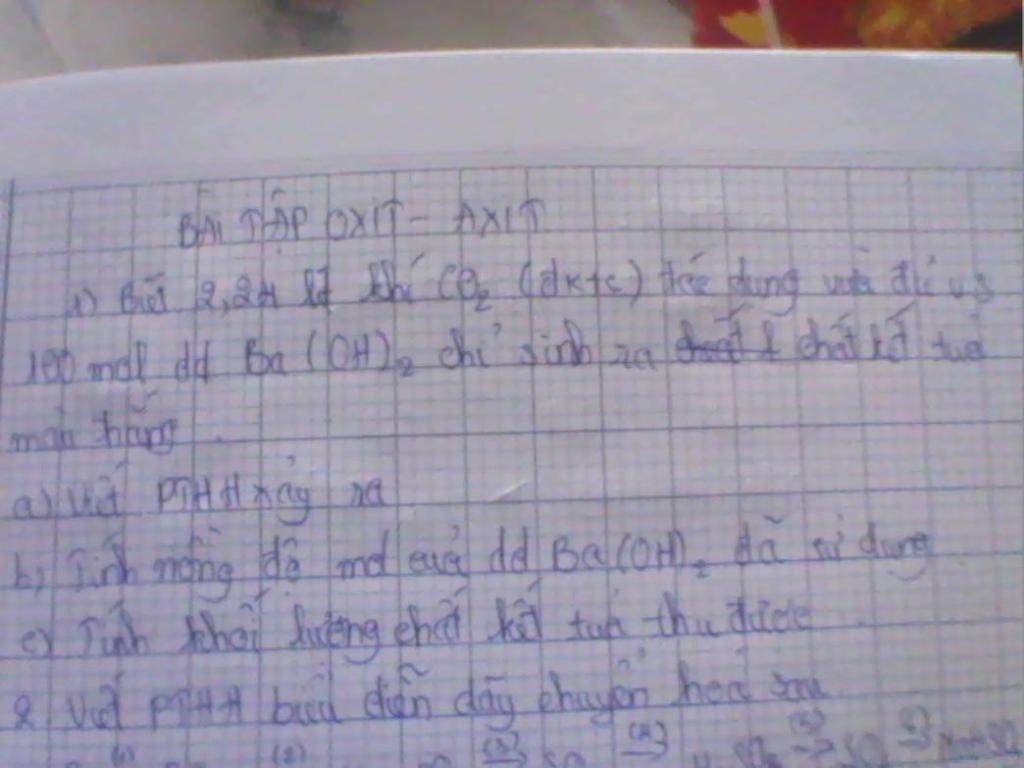 BÀI TẬP OXIT - AXIT
1) Biết 2,24 lít khí CO₂ (đktc) tác dụng vừa đủ vs
100 mol dd Ba(OH)₂ chỉ sinh ra chất kết tủa
màu trắng
a) Viết PTHH xảy ra
b) Tính nồng độ mol của dd Ba(OH)₂ đã sử dụng
c) Tính khối lượng chất kết tủa thu được
2 Viết PTHH biểu diễn dãy chuyển hoá sau
(1) (2) (3)